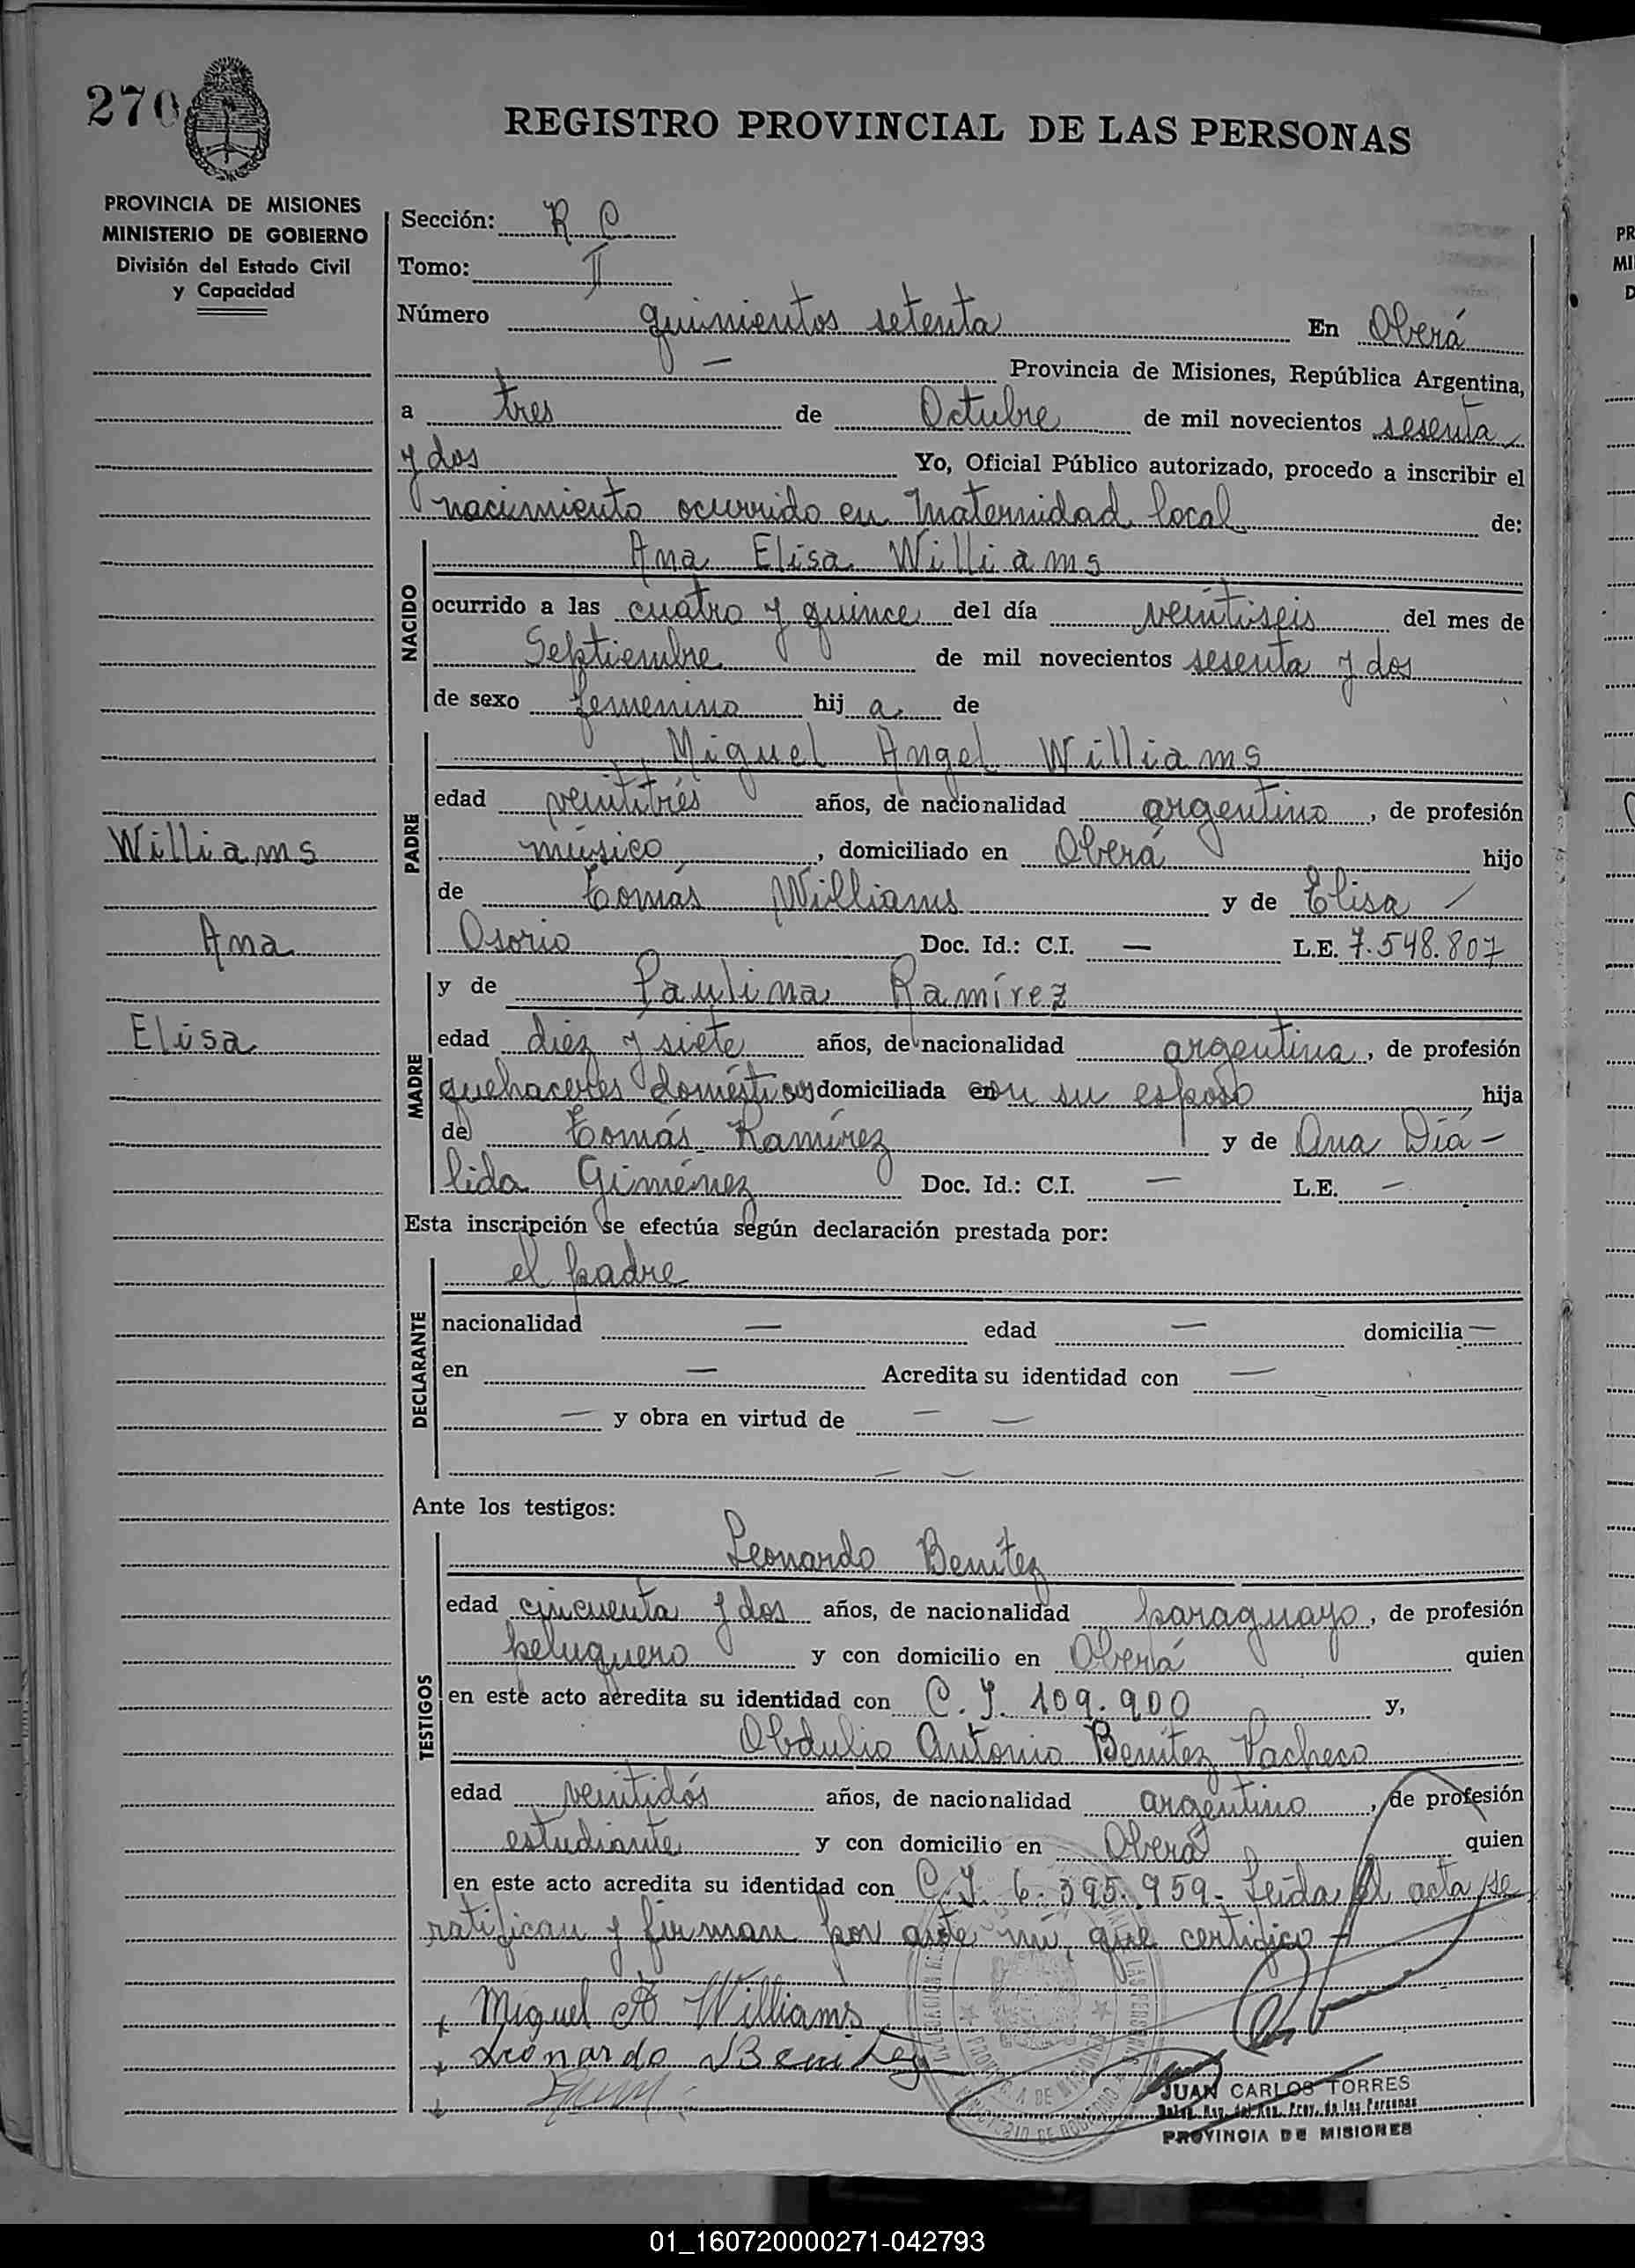 270
REGISTRO PROVINCIAL DE LAS PERSONAS
PROVINCIA DE MISIONES
MINISTERIO DE GOBIERNO
División del Estado Civil
y Capacidad
Sección: R C
Tomo: II
Número quinientos setenta En Oberá
— Provincia de Misiones, República Argentina,
a tres de Octubre de mil novecientos sesenta
y dos Yo, Oficial Público autorizado, procedo a inscribir el
nacimiento ocurrido en Maternidad local de:
NACIDO
Ana Elisa Williams
ocurrido a las cuatro y quince del día veintiseis del mes de
Septiembre de mil novecientos sesenta y dos
de sexo femenino hij a de
PADRE
Miguel Angel Williams
edad veintitrés años, de nacionalidad argentino, de profesión
músico, domiciliado en Oberá hijo
de Tomás Williams y de Elisa
Osorio Doc. Id.: C.I. — L.E. 7.548.807
Williams
Ana
Elisa
MADRE
y de Paulina Ramírez
edad diez y siete años, de nacionalidad argentina, de profesión
quehaceres domésticos domiciliada con su esposo hija
de Tomás Ramírez y de Ana Diá-
lida Giménez Doc. Id.: C.I. — L.E. —
Esta inscripción se efectúa según declaración prestada por:
DECLARANTE
el padre
nacionalidad — edad — domicilia —
en — Acredita su identidad con —
— y obra en virtud de — —
— —
Ante los testigos:
TESTIGOS
Leonardo Benítez
edad cincuenta y dos años, de nacionalidad paraguayo, de profesión
peluquero y con domicilio en Oberá quien
en este acto acredita su identidad con C.I. 109.900 y,
Obdulio Antonio Benítez Pacheco
edad veintidós años, de nacionalidad argentino, de profesión
estudiante y con domicilio en Oberá quien
en este acto acredita su identidad con C.I. 6.395.959- Leída el acta, se
ratifican y firman por ante mí, que certifico -
Miguel A Williams
Leonardo Benitez
JUAN CARLOS TORRES
PROVINCIA DE MISIONES
01_160720000271-042793